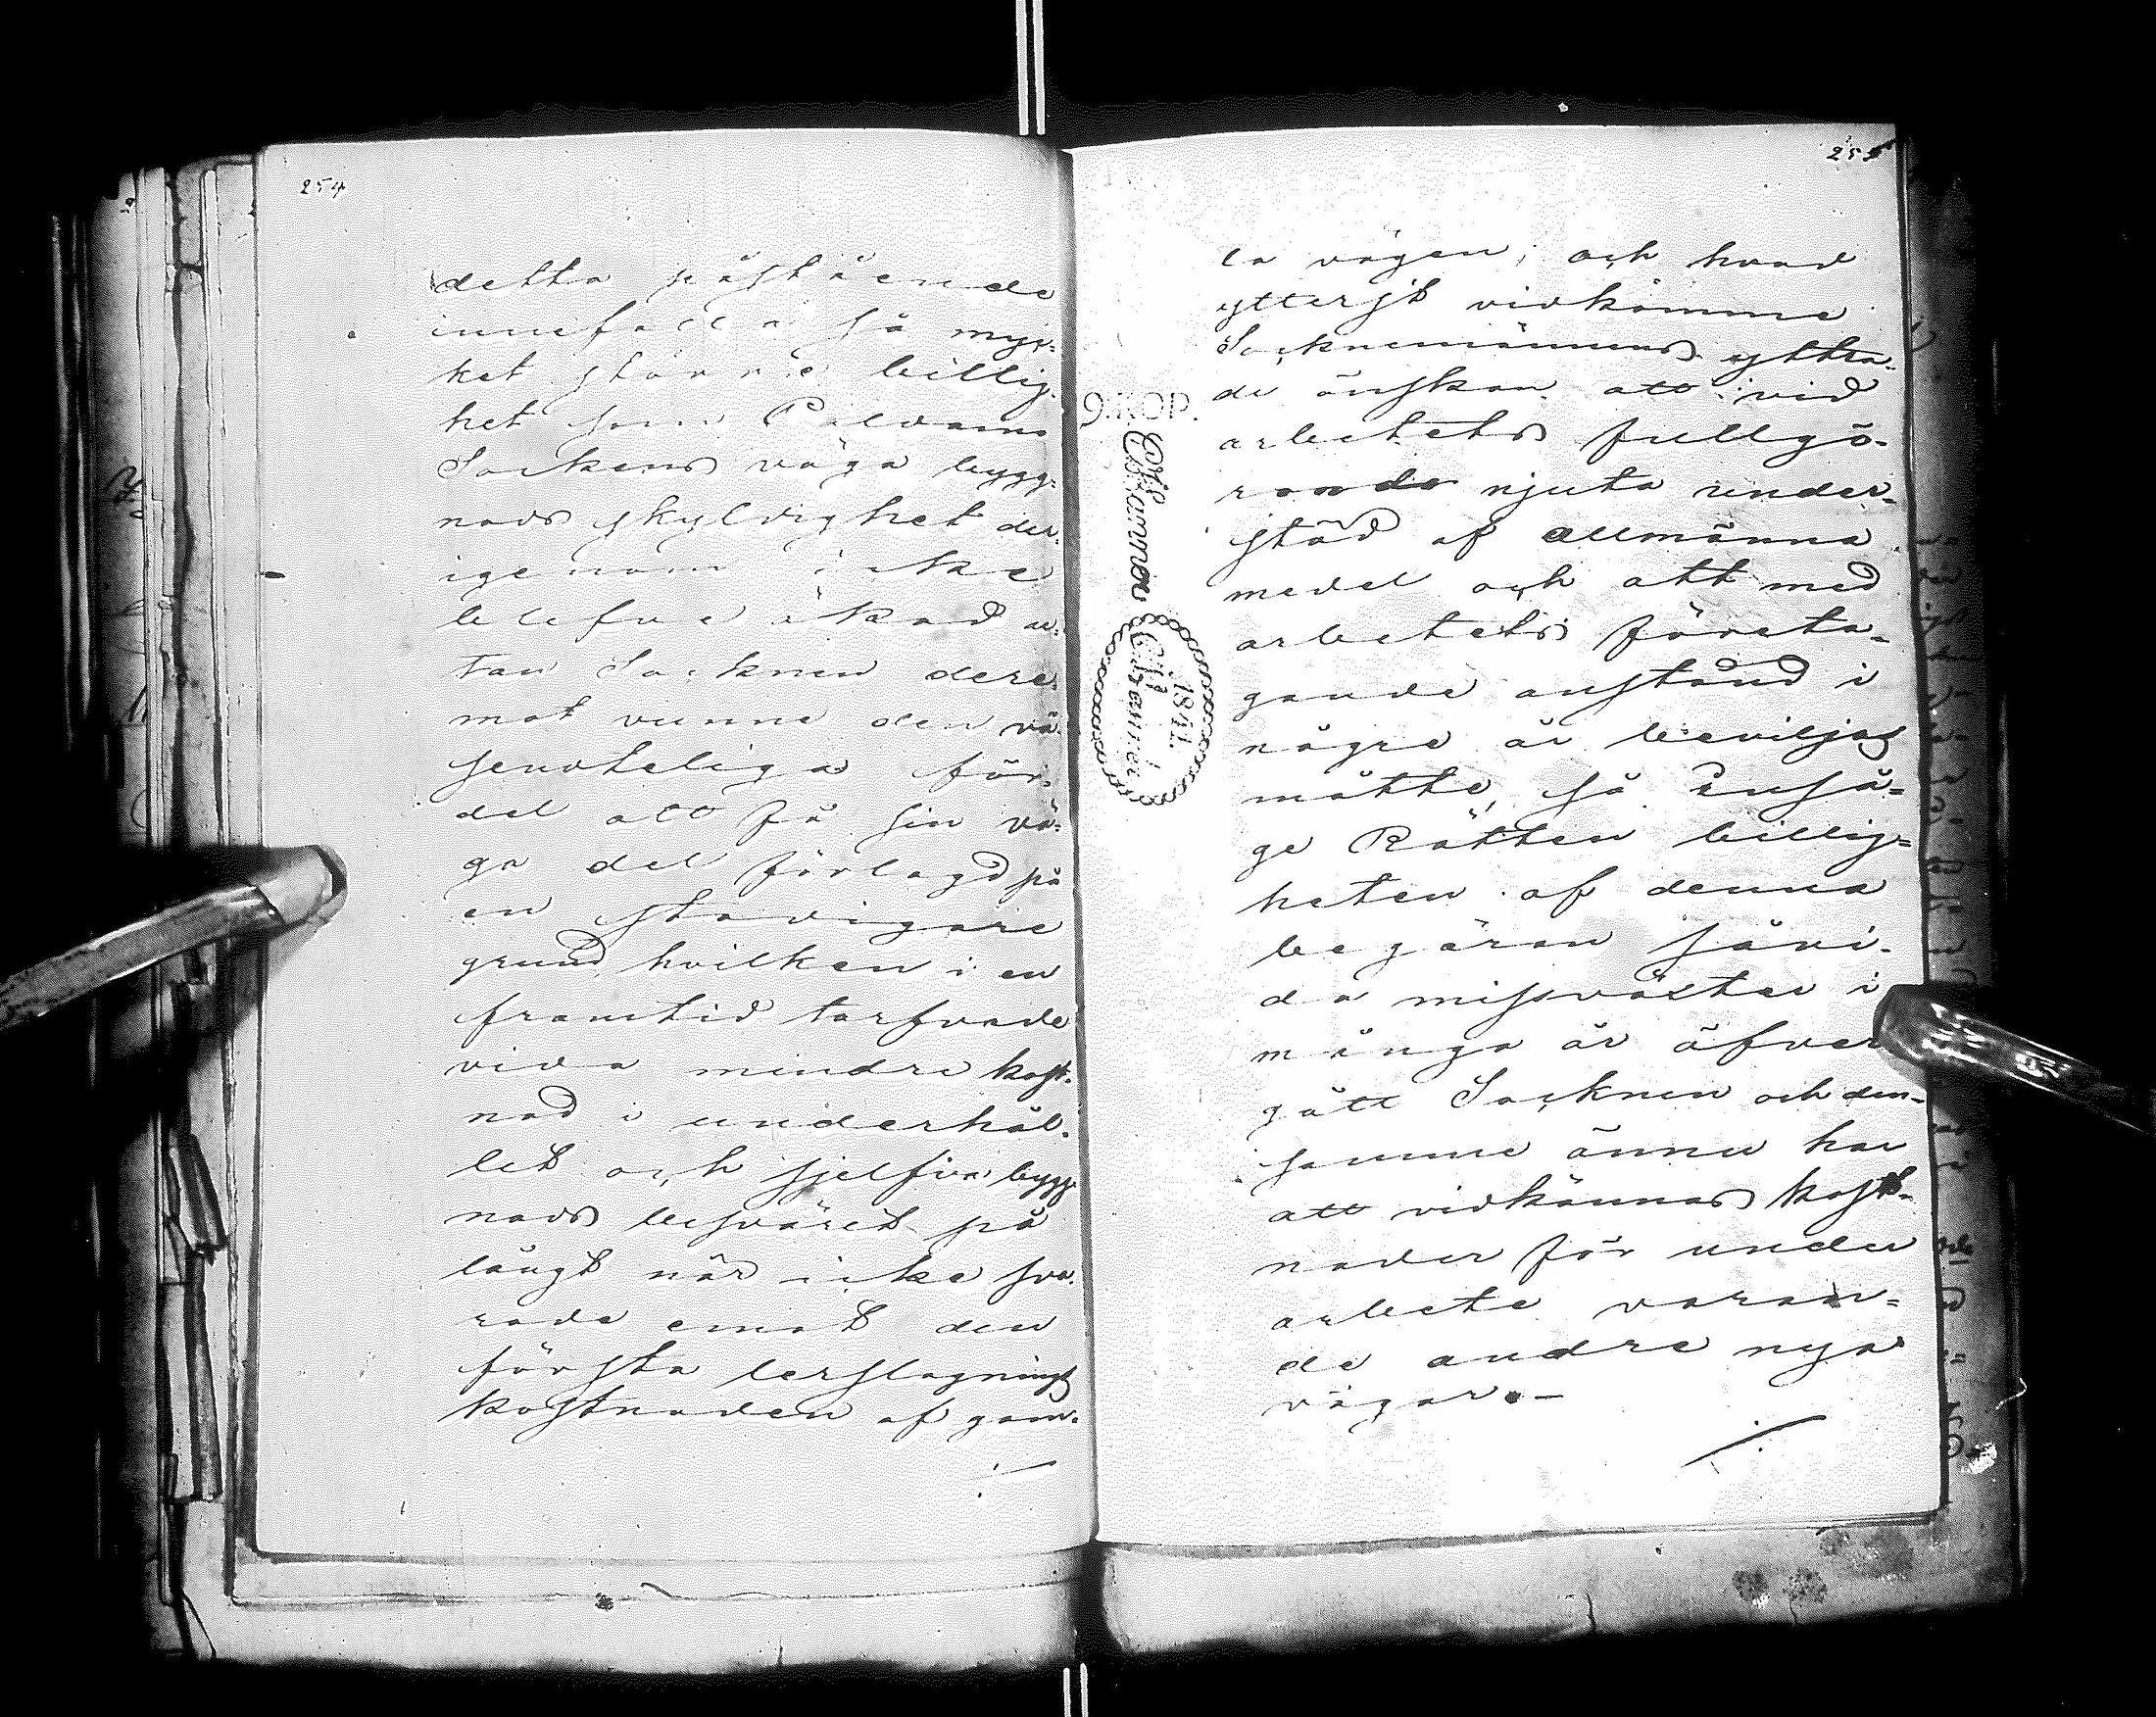 254
detta påstående
innefatta så myc-
ket större billig-
het som Paldamo
Sockens väga bygg-
nads skyldighet der-
igenom icke
blefve ökad u-
tan Socknen dere-
mot vunne den vä-
sendteliga för-
del att få sin vä-
ga del förlagd på
en stadigare
grund, hvilken i en
framtid tarfvade
vida mindre kost-
nad i underhål-
let och sjelfva bygg-
nads besväret på
långt när icke sva-
rade emot den
första lerslagnings
kostnaden af gam-
./.
255
la vägen; och hvad
ytterst vidkomme
Socknemännens yttra-
de önskan att vid
arbetets fullgö-
rande njuta under-
stöd af allmänna
medel och att med
arbetets företa-
gande anstånd i
någre år beviljas
måtte, så Inså-
ge Rätten billig-
heten af denna
begäran såvi-
da missväxter i
många år öfver
gått Socknen och den-
samme ännu har
att vidkännas kost-
nader för under
arbete varan-
de andre nya
vägar. —
./.
9. KOP.
Charta
1841.